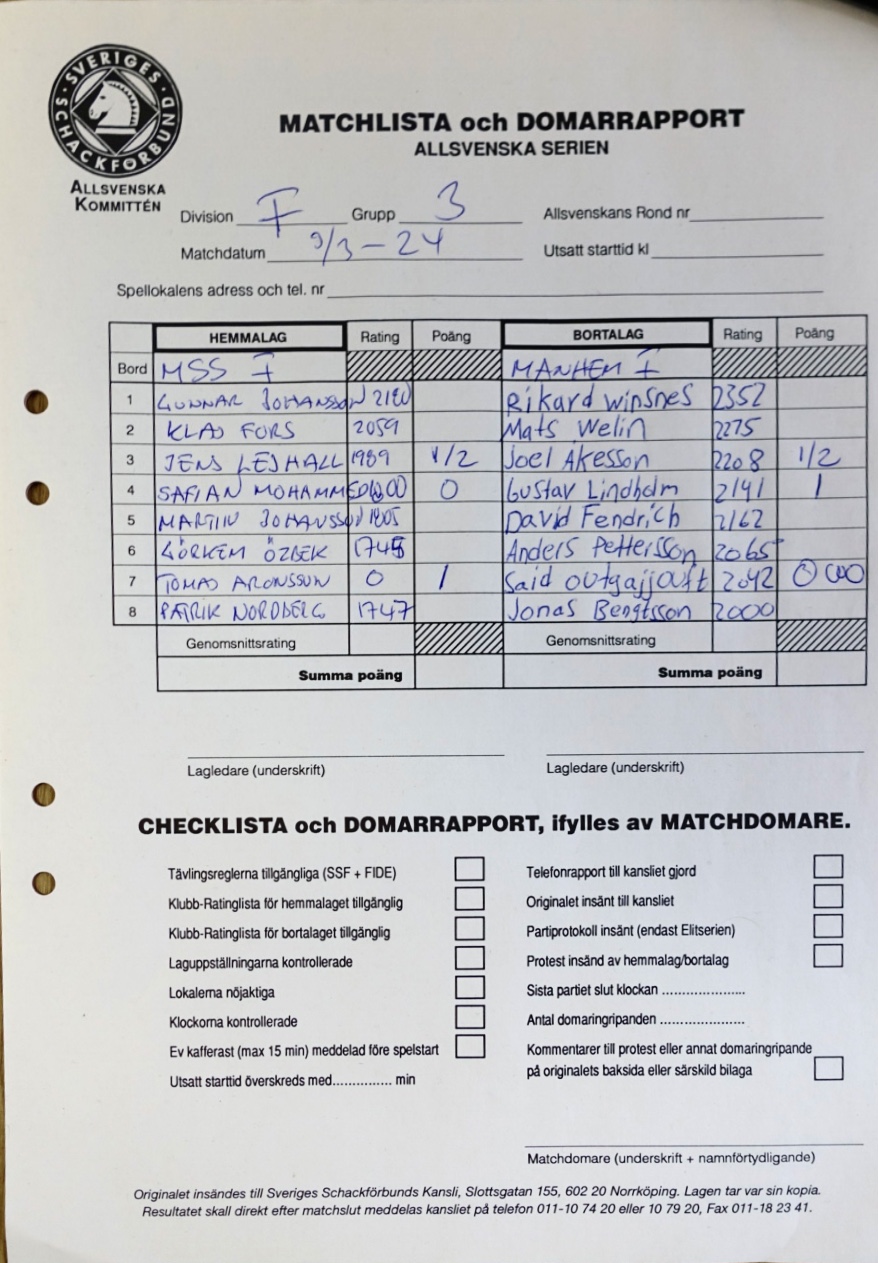 SVERIGES SCHACKFÖRBUND
ALLSVENSKA
KOMMITTÉN
MATCHLISTA och DOMARRAPPORT
ALLSVENSKA SERIEN
Division I Grupp 3 Allsvenskans Rond nr
Matchdatum 9/3-24 Utsatt starttid kl
Spellokalens adress och tel. nr
HEMMALAG Rating Poäng BORTALAG Rating Poäng
Bord MSS I MANHEM I
1 GUNNAR JOHANSSON Rikard Winsnes 2352
2 KLAS FORS 2059 Mats Welin 2275
3 JENS LEJHALL 1989 1/2 Joel Åkesson 2208 1/2
4 SAFIAN MOHAMMED 0 Gustav Lindholm 2141 1
5 MARTIN JOHANSSON 1805 David Fendrich 2162
6 GÖRKEM ÖZBEK Anders Pettersson 2065
7 TOMAS ARONSSON 0 1 Said 2042 0
8 PATRIK NORDBERG 1747 Jonas Bengtsson 2000
Genomsnittsrating Genomsnittsrating
Summa poäng Summa poäng
Lagledare (underskrift) Lagledare (underskrift)
CHECKLISTA och DOMARRAPPORT, ifylles av MATCHDOMARE.
Tävlingsreglerna tillgängliga (SSF + FIDE) Telefonrapport till kansliet gjord
Klubb-Ratinglista för hemmalaget tillgänglig Originalet insänt till kansliet
Klubb-Ratinglista för bortalaget tillgänglig Partiprotokoll insänt (endast Elitserien)
Laguppställningarna kontrollerade Protest insänd av hemmalag/bortalag
Lokalerna nöjaktiga Sista partiet slut klockan ....................
Klockorna kontrollerade Antal domaringripanden ....................
Ev kafferast (max 15 min) meddelad före spelstart Kommentarer till protest eller annat domaringripande
på originalets baksida eller särskild bilaga
Utsatt starttid överskreds med.............. min
Matchdomare (underskrift + namnförtydligande)
Originalet insändes till Sveriges Schackförbunds Kansli, Slottsgatan 155, 602 20 Norrköping. Lagen tar var sin kopia.
Resultatet skall direkt efter matchslut meddelas kansliet på telefon 011-10 74 20 eller 10 79 20, Fax 011-18 23 41.